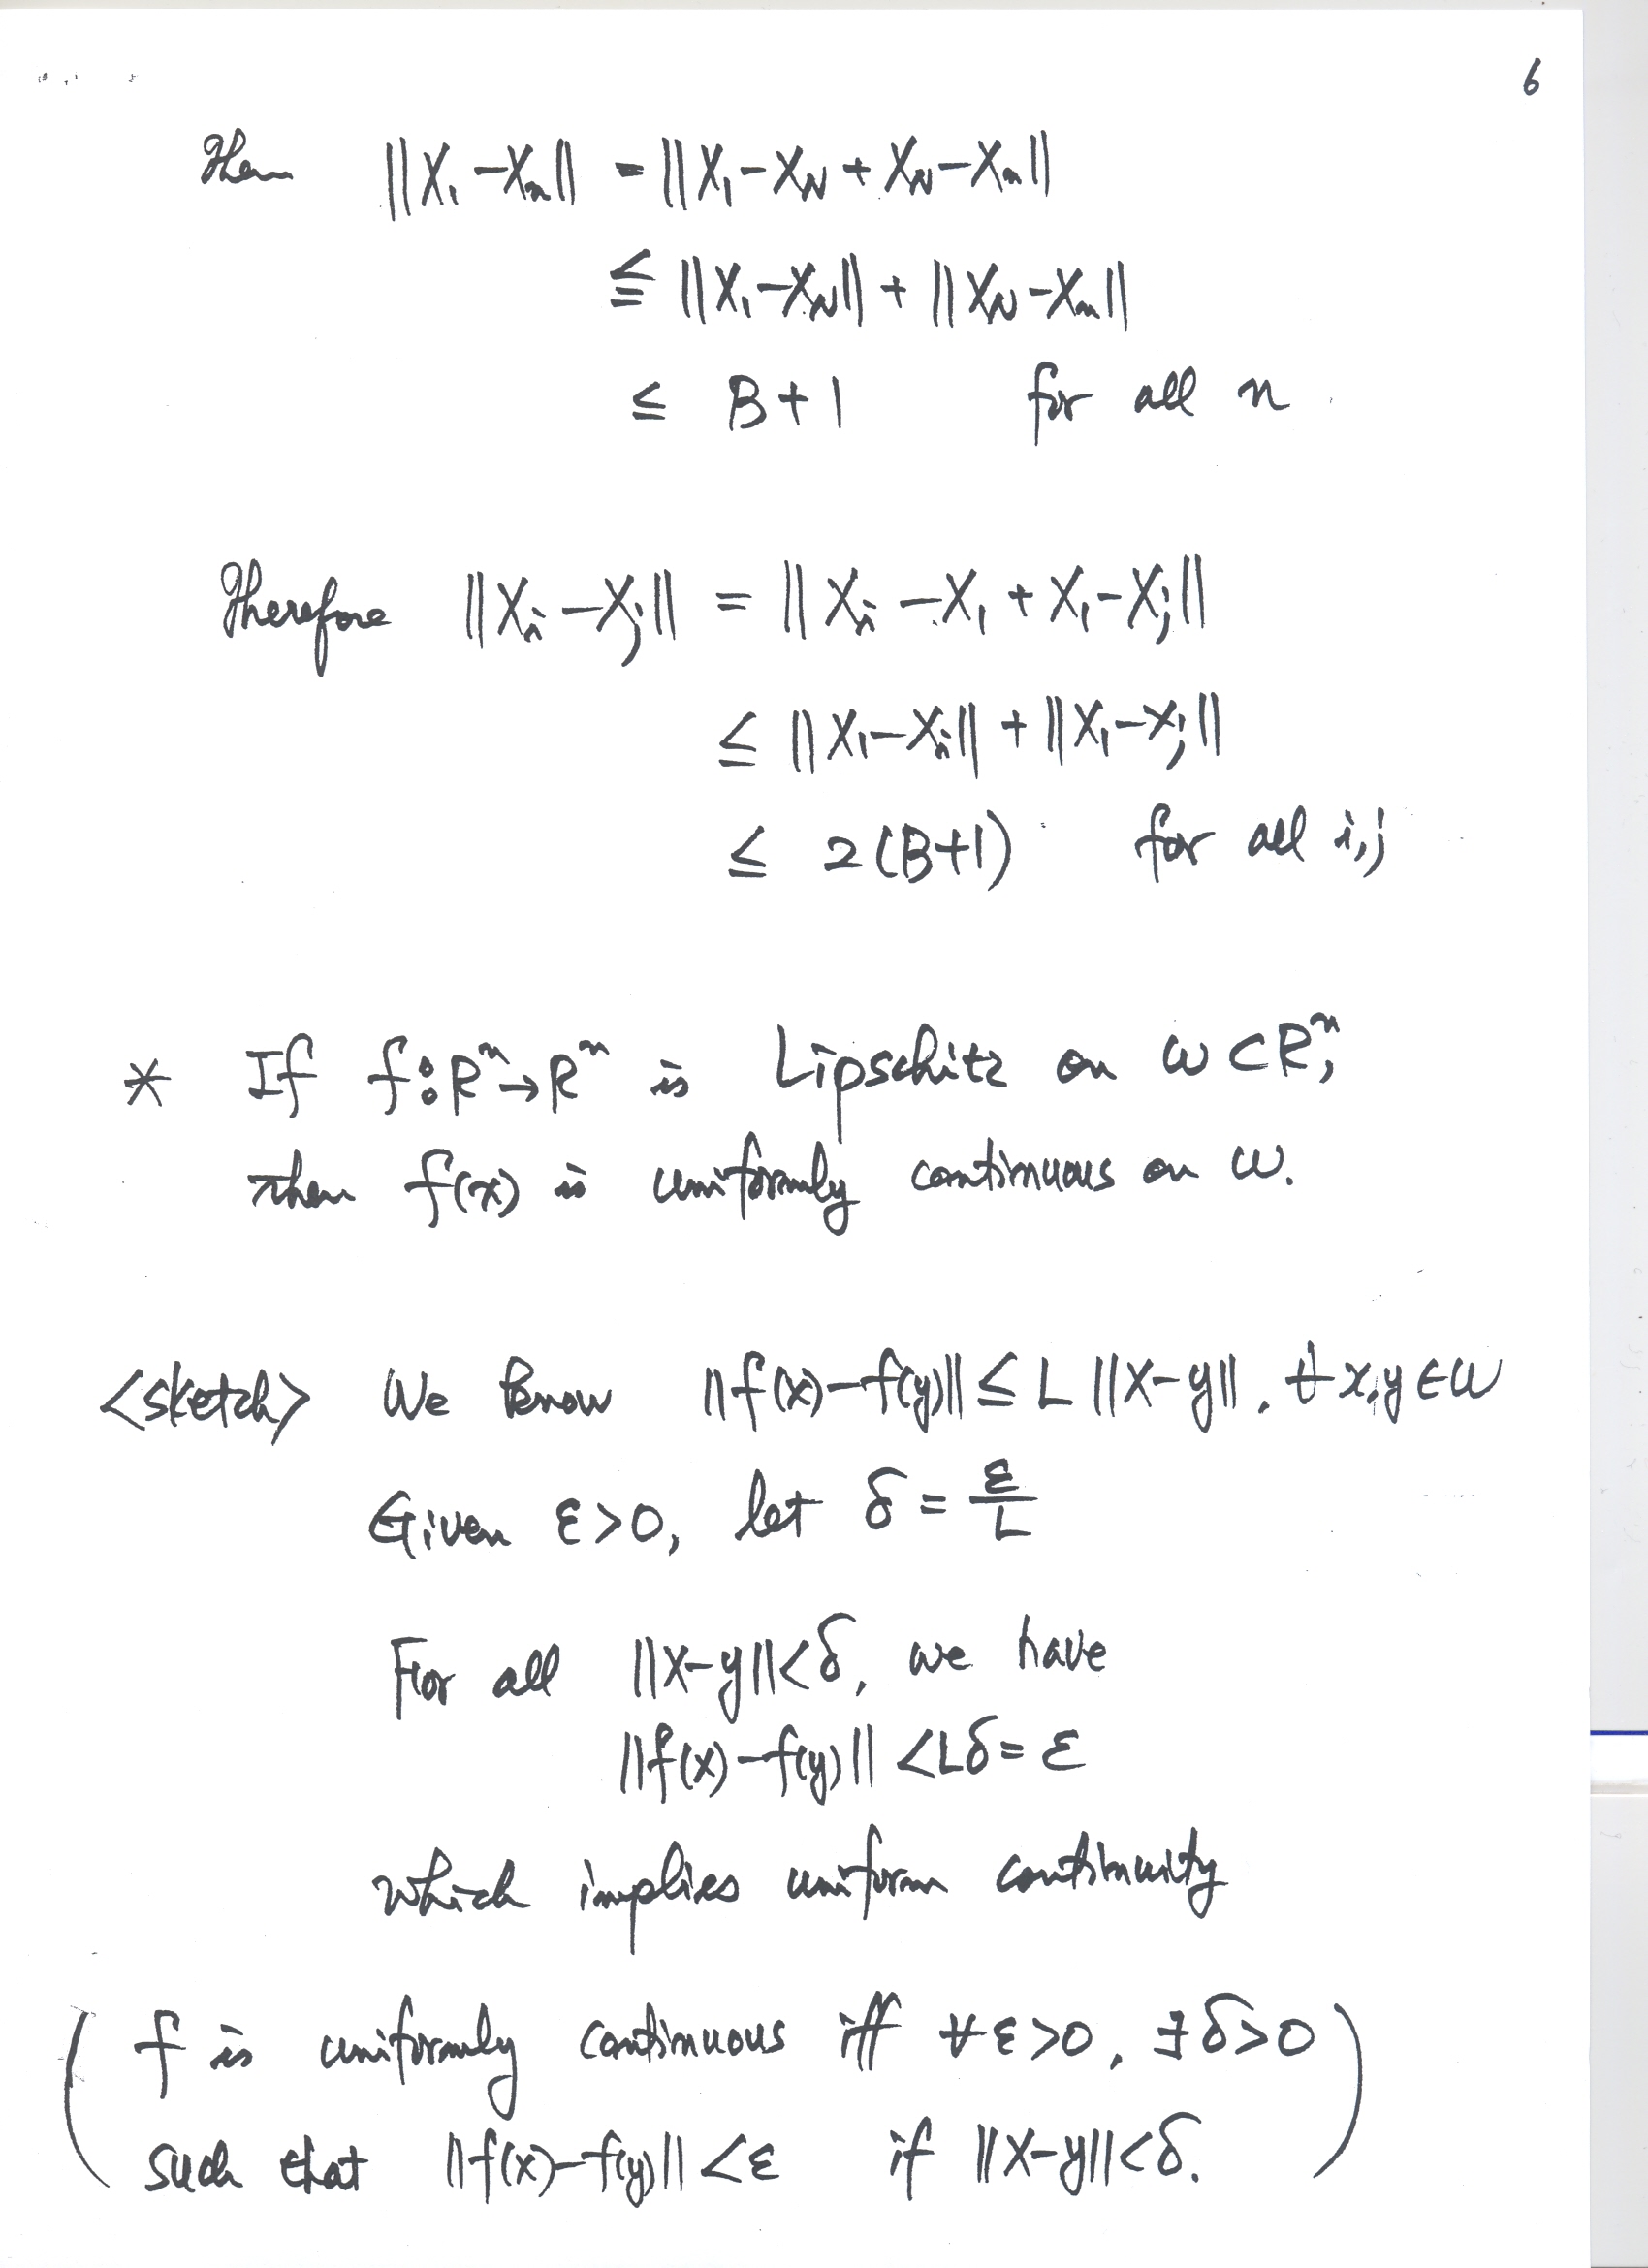 6
Then ||X₁-Xₙ|| = ||X₁-X_N + X_N-Xₙ||
≦ ||X₁-X_N|| + ||X_N-Xₙ||
≤ B+1 for all n
Therefore ||Xᵢ-Xⱼ|| = ||Xᵢ-X₁+X₁-Xⱼ||
≤ ||X₁-Xᵢ|| + ||X₁-Xⱼ||
≤ 2(B+1) for all i,j
* If f:Rⁿ→Rⁿ is Lipschitz on W⊂Rⁿ,
then f(x) is uniformly continuous on W.
<sketch> We know ||f(x)-f(y)|| ≤ L ||X-y||, ∀ x,y ∈ W
Given ε>0, let δ = ε/L
For all ||X-y||<δ, we have
||f(x)-f(y)|| <Lδ= ε
which implies uniform continuity
( f is uniformly continuous iff ∀ε>0, ∃δ>0
such that ||f(x)-f(y)|| <ε if ||X-y||<δ. )